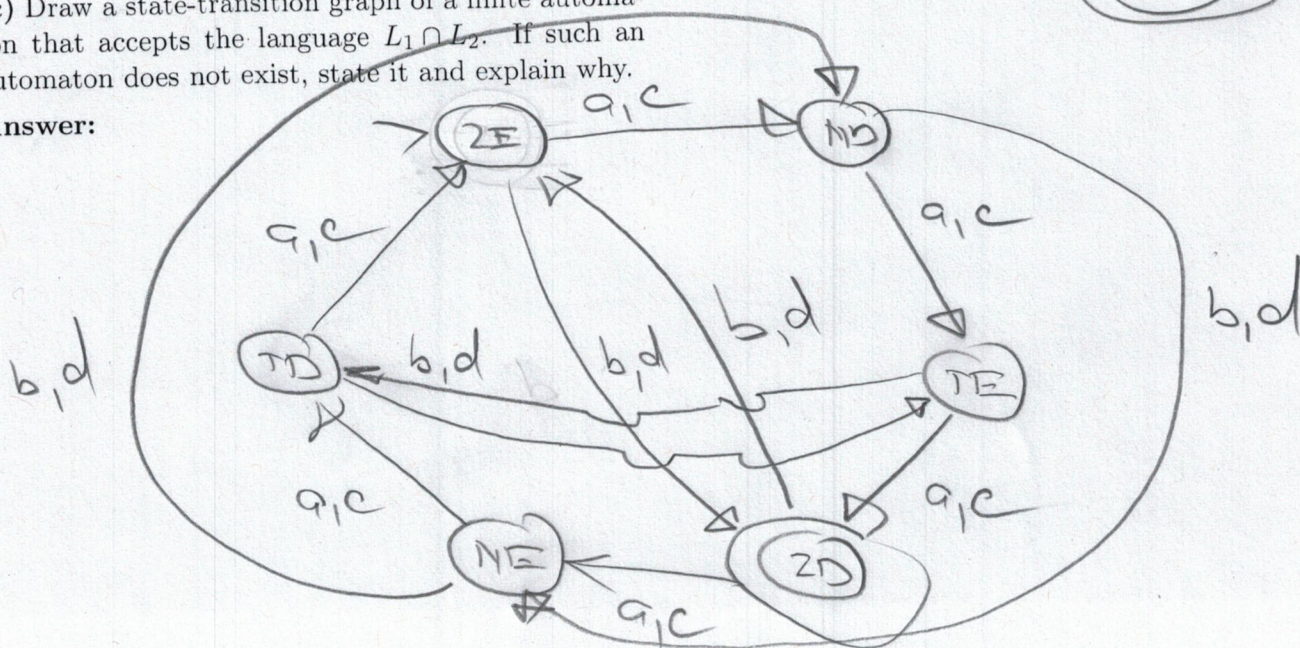 c) Draw a state-transition graph of a finite automa-
on that accepts the language L₁ ∩ L₂. If such an
utomaton does not exist, state it and explain why.
nswer:
a,c
2E
ND
a,c
a,c
b,d
b,d
b,d
b,d
b,d
TD
TE
a,c
a,c
NE
2D
a,c